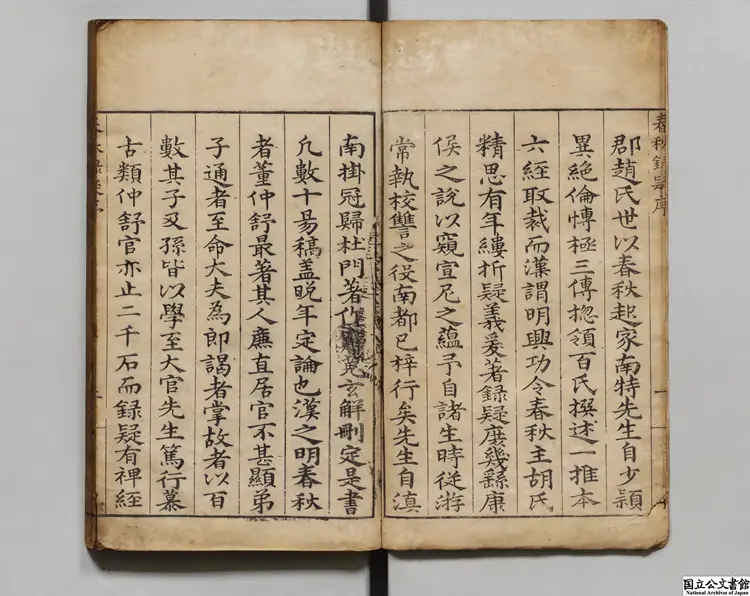 春秋錄疑序
郡趙氏世以春秋起家南特先生自少穎
異絶倫愽極三傳揔領百氏撰述一推本
六經取裁而漢謂明興功令春秋主胡氏
精思有年縷析疑義爰著録疑庶幾繇康
侯之說以窺宣尼之蘊予自諸生時從游
常執校讐之役南都已梓行矣先生自滇
南掛冠歸杜門著作 玄解刪定是書
凡數十易稿盖晚年定論也漢之明春秋
者董仲舒最著其人廉直居官不甚顯弟
子通者至命大夫為郎謁者掌故者以百
數其子及孫皆以學至大官先生篤行慕
古類仲舒官亦止二千石而録疑有裨經
国立公文書館
National Archives of Japan